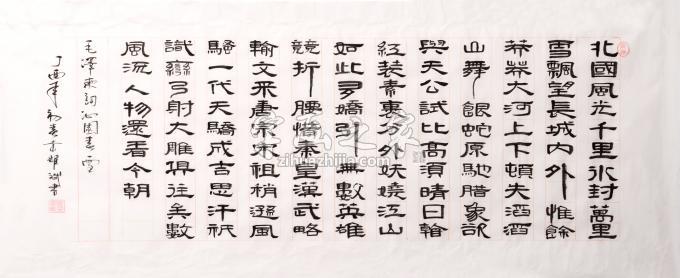 北國風光千里冰封萬里
雪飄望長城內外惟餘
莽莽大河上下頓失滔滔
山舞銀蛇原馳臘象欲
與天公試比高須晴日看
紅裝素裹分外妖嬈江山
如此多嬌引無數英雄
競折腰惜秦皇漢武略
輸文采唐宗宋祖稍遜風
騷一代天驕成吉思汗祇
識彎弓射大雕俱往矣數
風流人物還看今朝
毛澤東詞沁園春雪
丁酉年初春書
字画之家
zihuazhijia.com